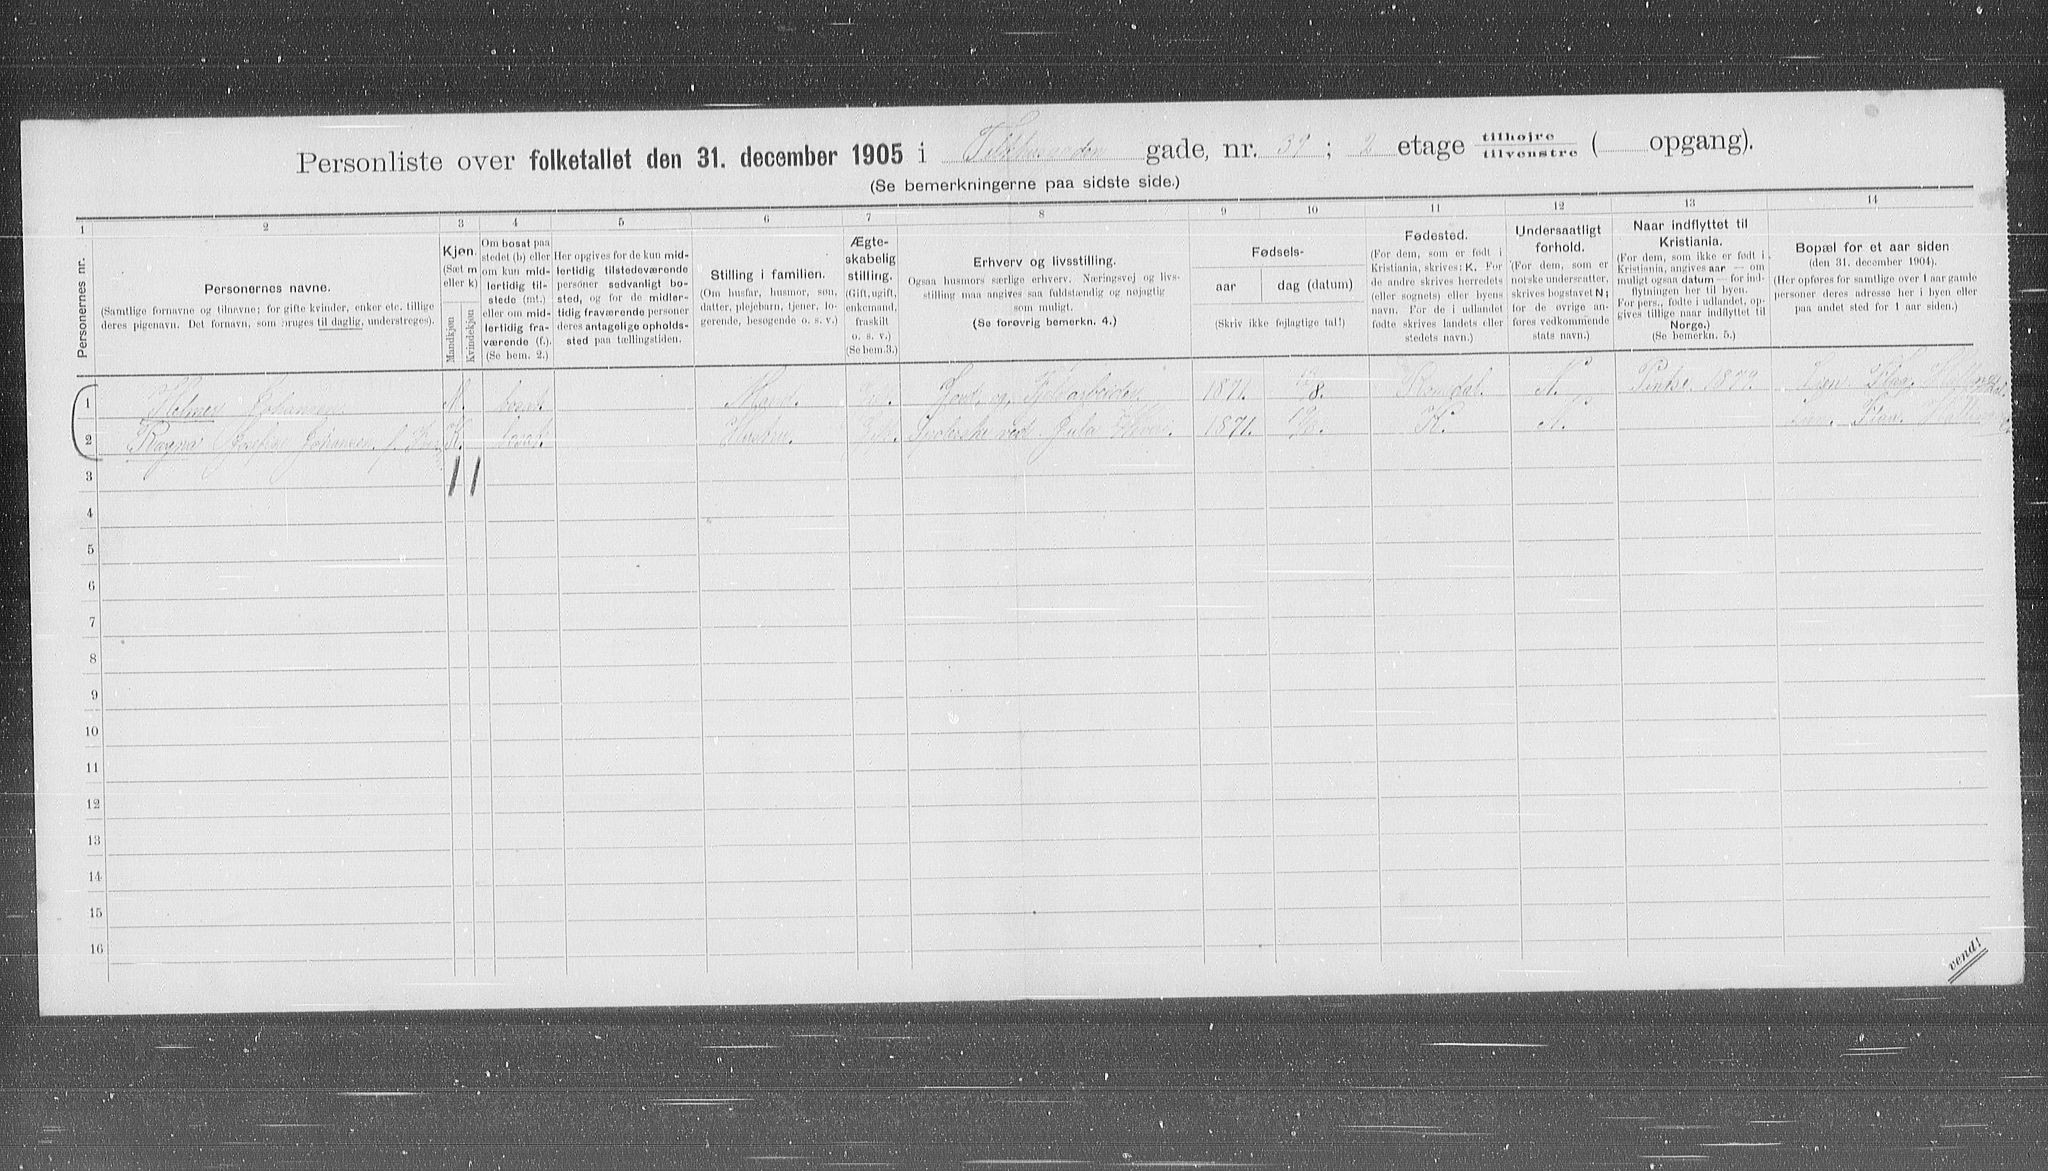 Personliste over folketallet den 31. december 1905 i gade, nr. 39 ; 2 etage tilhøjre / tilvenstre ( opgang).
(Se bemerkningerne paa sidste side.)
1 2 3 4 5 6 7 8 9 10 11 12 13 14
Personernes nr.
Personernes navne.
(Samtlige fornavne og tilnavne; for gifte kvinder, enker etc. tillige
deres pigenavn. Det fornavn, som bruges til daglig, understreges).
Kjøn.
(Sæt m
eller k)
Mandkjøn
Kvindekjøn
Om bosat paa
stedet (b) eller
om kun mid-
lertidig til-
stede (mt.)
eller om mid-
lertidig fra-
værende (f.).
(Se bem. 2.)
Her opgives for de kun mid-
lertidig tilstedeværende
personer sedvanlig bo-
sted, og for de midler-
tidig fraværende personer
deres antagelige opholds-
sted paa tællingstiden.
Stilling i familien.
(Om husfar, husmor, søn,
datter, plejebarn, tjener, lo-
gerende, besøgende o. s. v.)
Ægte-
skabelig
stilling.
(Gift, ugift,
enkemand,
fraskilt
o. s. v.)
(Se bem. 3.)
Erhverv og livsstilling.
Ogsaa husmors særlige erhverv. Næringsvej og livs-
stilling maa angives saa fuldstændig og nøjagtig
som muligt.
(Se forøvrig bemerkn. 4.)
Fødsels-
aar
dag (datum)
(Skriv ikke fejlagtige tal!)
Fødested.
(For dem, som er født i
Kristiania, skrives: K. For
de andre skrives herredets
(eller sognets) eller byens
navn. For de i udlandet
fødte skrives landets eller
stedets navn.)
Undersaatligt
forhold.
(For dem, som er
norske undersaatter,
skrives bogstavet N;
for de øvrige an-
føres vedkommende
stats navn.)
Naar indflyttet til
Kristiania.
(For dem, som ikke er født i
Kristiania, angives aar — om
muligt ogsaa datum — for ind-
flytningen her til byen.
For pers., fødte i udlandet, op-
gives tillige naar indflyttet til
Norge.)
(Se bemerkn. 5.)
Bopæl for et aar siden
(den 31. december 1904).
(Her opføres for samtlige over 1 aar gamle
personer deres adresse her i byen eller
paa andet sted for 1 aar siden.)
1 Helmer Johansen M. bosat Mand. 1871 N.
2 Ragna Johansen f. K. bosat Hustru. 1871. K. N.
3
4
5
6
7
8
9
10
11
12
13
14
15
16
vend!